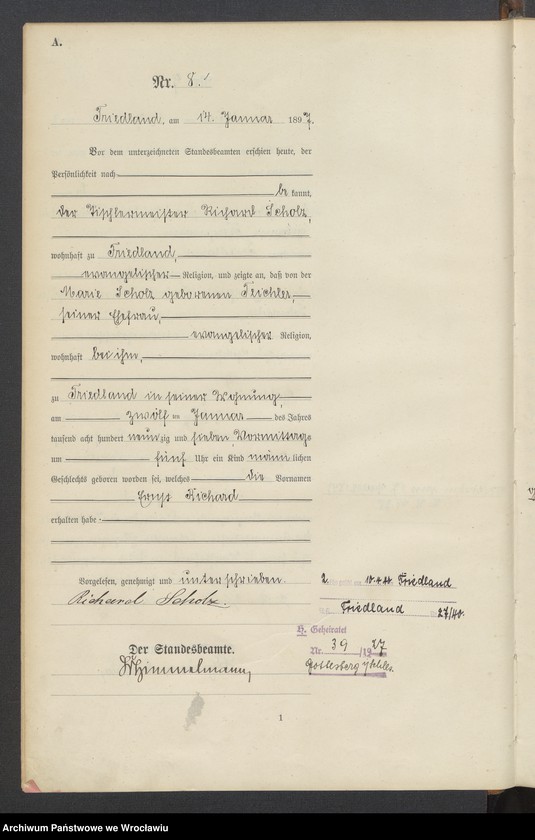 A.
Nr. 8.
Friedland, am 14. Januar 1897.
Vor dem unterzeichneten Standesbeamten erschien heute, der
Persönlichkeit nach
be kannt,
der Tischlermeister Richard Scholz,
wohnhaft zu Friedland,
evangelischer Religion, und zeigte an, daß von der
Marie Scholz geborenen Teichler,
seiner Ehefrau,
evangelischer Religion,
wohnhaft bei ihm,
zu Friedland in seiner Wohnung,
am zwölf ten Januar des Jahres
tausend acht hundert neun zig und sieben Vormittags
um fünf Uhr ein Kind männ lichen
Geschlechts geboren worden sei, welches die Vornamen
Ernst Richard
erhalten habe.
Vorgelesen, genehmigt und unterschrieben.
Richard Scholz.
2 Friedland
Friedland 27/40.
H. Geheiratet
Nr. 39 /1927
Gottesberg
Der Standesbeamte.
Himmelmann,
1
Archiwum Państwowe we Wrocławiu